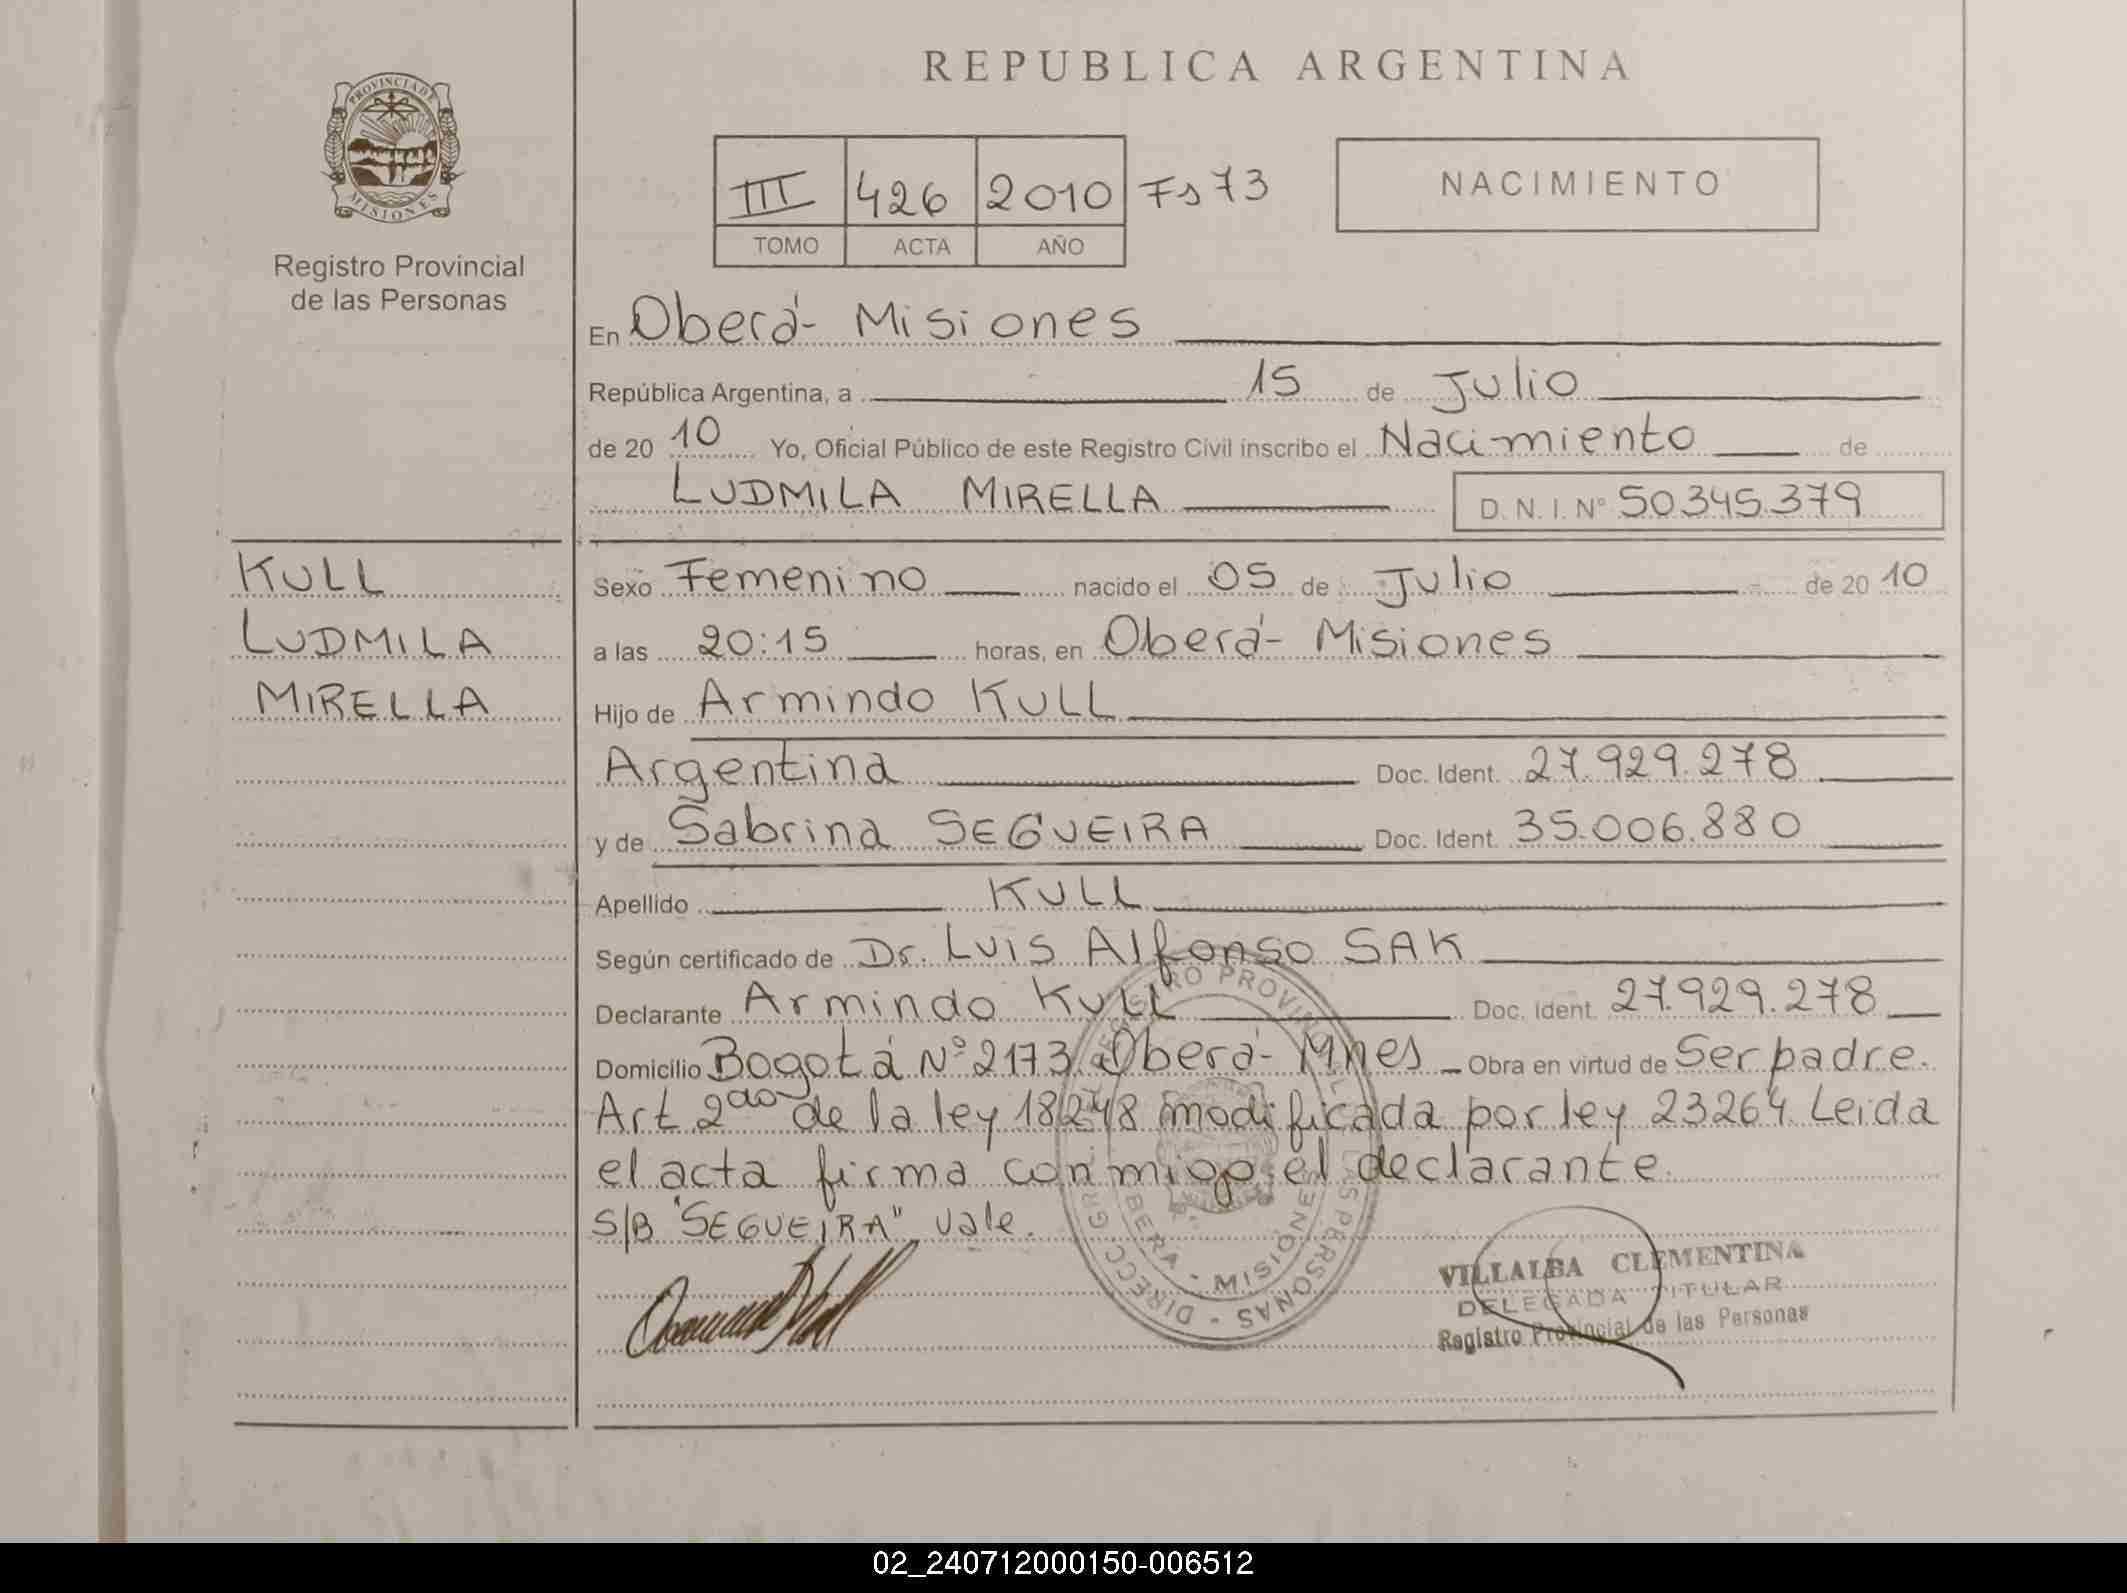 REPUBLICA ARGENTINA
PROVINCIA DE
MISIONES
Registro Provincial
de las Personas
III 426 2010 Fs 73
TOMO ACTA AÑO
NACIMIENTO
En Oberá - Misiones
República Argentina, a 15 de Julio
de 20 10 Yo, Oficial Público de este Registro Civil inscribo el Nacimiento de
LUDMILA MIRELLA D. N. I. Nº 50.345.379
KULL
LUDMILA
MIRELLA
Sexo Femenino nacido el 05 de Julio de 20 10
a las 20:15 horas, en Oberá - Misiones
Hijo de Armindo KULL
Argentina Doc. Ident. 27.929.278
y de Sabrina SEGUEIRA Doc. Ident. 35.006.880
Apellido KULL
Según certificado de Dr. Luis Alfonso SAK
Declarante Armindo KULL Doc. Ident. 27.929.278
Domicilio Bogotá Nº 2173 Oberá - Mnes Obra en virtud de Ser padre.
Art 2do de la ley 18248 modificada por ley 23264. Leida
el acta firma conmigo el declarante.
S/B "SEGUEIRA" Vale.
REGISTRO PROVINCIAL LAS PERSONAS - DIRECC GRL
OBERA - MISIONES
VILLALBA CLEMENTINA
DELEGADA TITULAR
Registro Provincial de las Personas
02_240712000150-006512